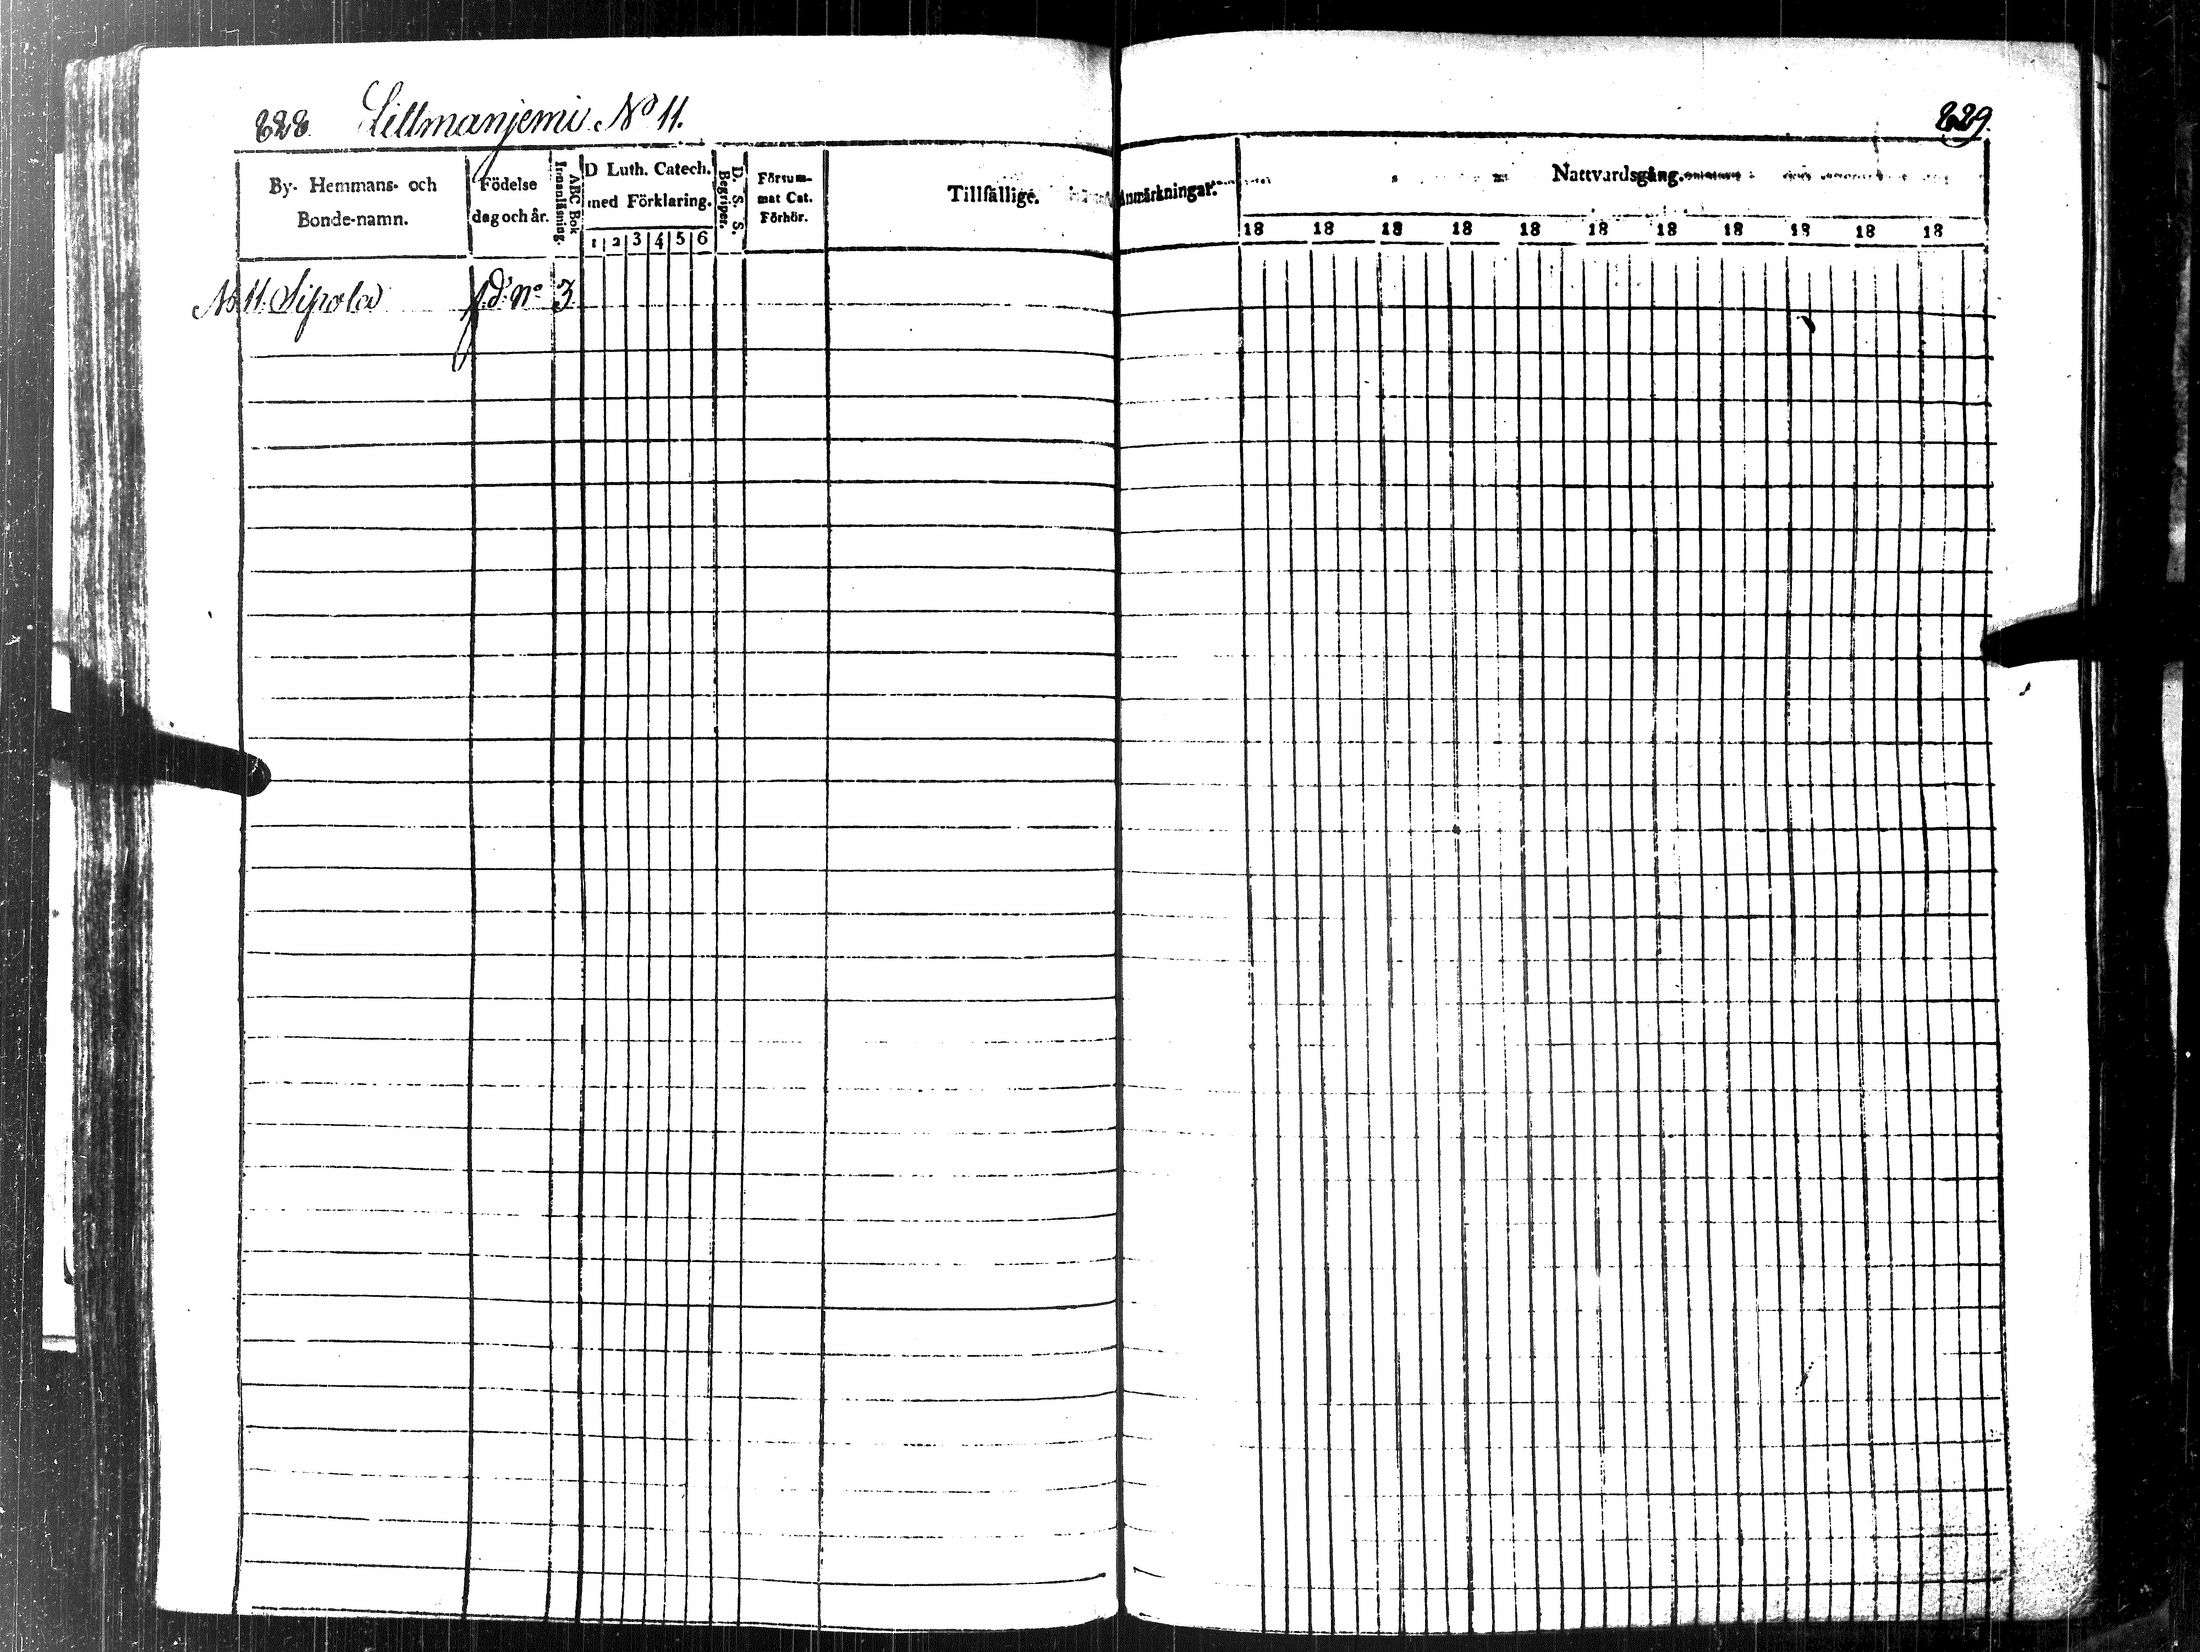 228. Littmanjemi No 11.
229.
By- Hemmans- och
Bonde-namn.
Födelse
dag och år.
Innanläsning.
ABC Bok
D Luth. Catech.
med Förklaring.
1 2 3 4 5 6
D. S. S.
Begriper.
Försum-
mat Cat.
Förhör.
Tillfällige. Anmärkningar.
Nattvardsgång.
18 18 18 18 18 18 18 18 18 18 18
No 11. Sipola f.d. No 3